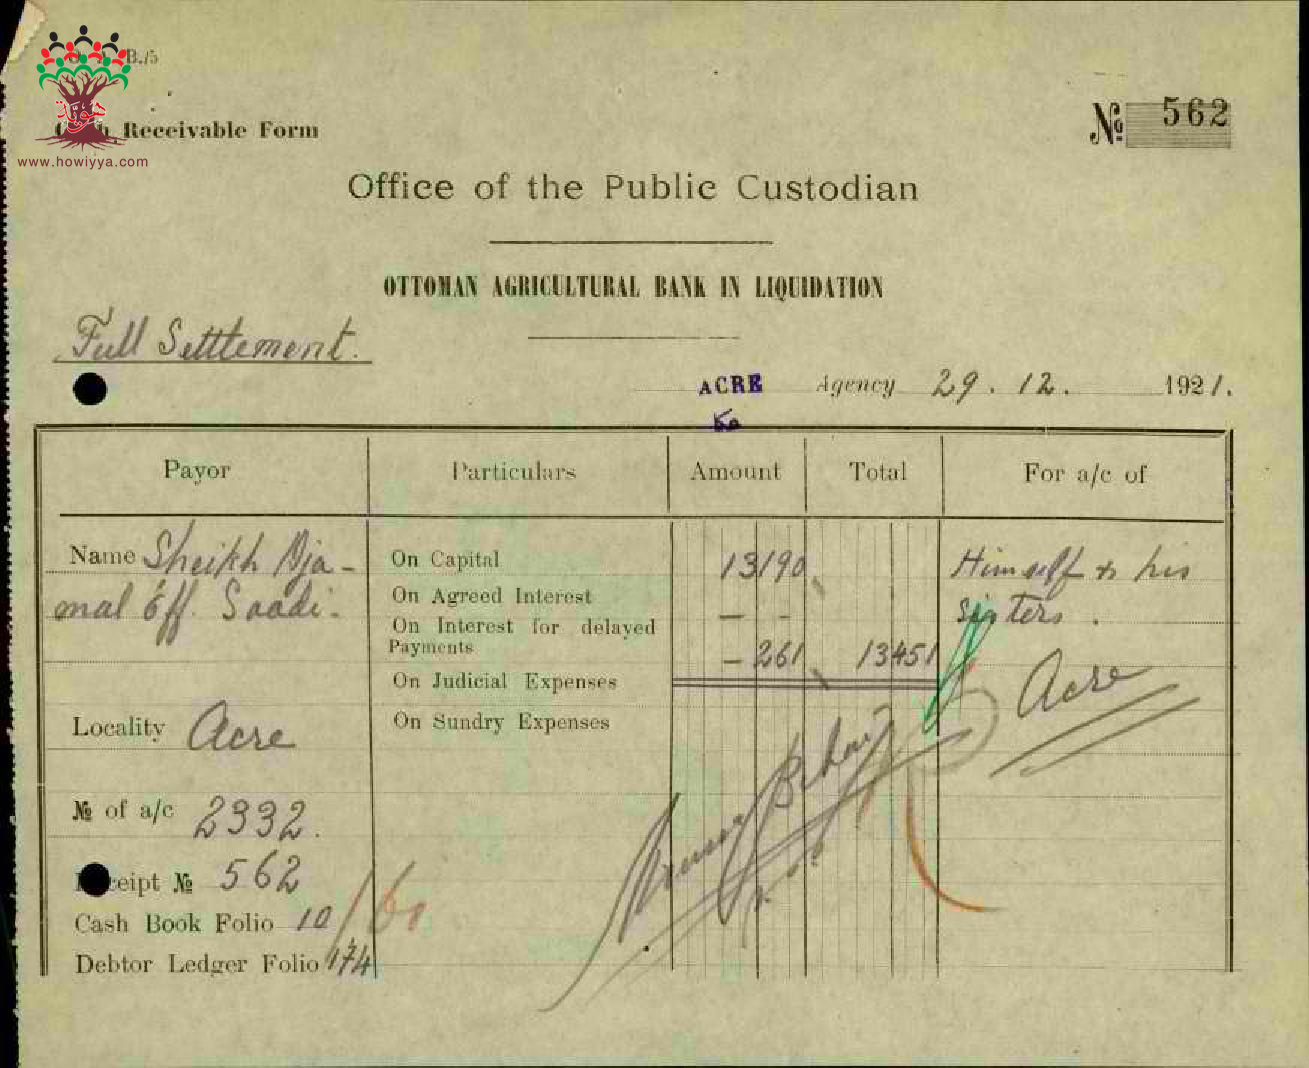 B./5
هوية
www.howiyya.com
Receivable Form
№ 562
Office of the Public Custodian
OTTOMAN AGRICULTURAL BANK IN LIQUIDATION
Full Setttement.
ACRE Agency 29.12. 1921.
Payor Particulars Amount Total For a/c of
Name Sheikh Dja-
mal Eff. Saadi.
On Capital 13190
On Agreed Interest — -
On Interest for delayed
Payments — 261 13451
On Judicial Expenses
On Sundry Expenses
Himself & his
sisters.
Acre
Locality Acre
№ of a/c 2332.
Receipt № 562
Cash Book Folio 10/61
Debtor Ledger Folio 174